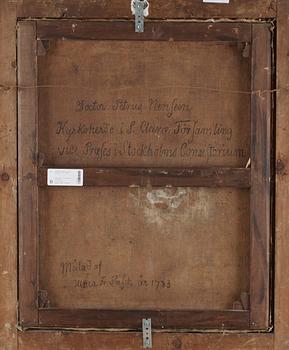 Doctor Petrus Nensen
Kyrkoherde i S. Clara Församling
vice Præses i Stockholms Consistorium
Målad af
år 1733